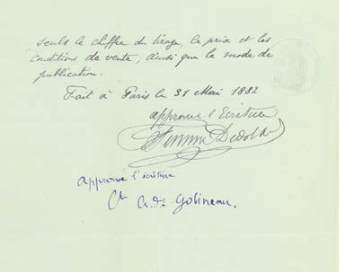 seuls le chiffre du tirage, le prix et les
conditions de vente, ainsi que le mode de
publication.
Fait à Paris le 31 Mai 1882
approuvé l'écriture
Firmin Didot
approuvé l'écriture
Cte A. de Gobineau.